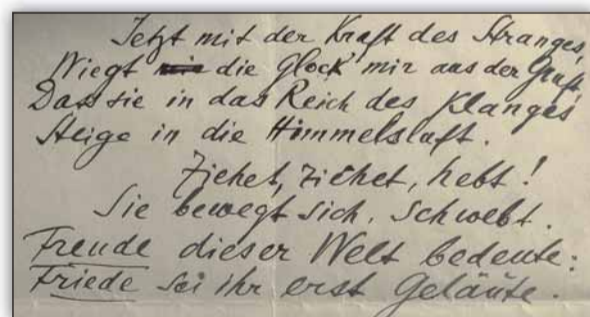 Jetzt mit der Kraft des Stranges,
Wiegt die Glock' mir aus der Gruft,
Dass sie in das Reich des Klanges
Steige in die Himmelsluft.
Ziehet, ziehet, hebt!
Sie bewegt sich, schwebt.
Freude dieser Welt bedeute:
Friede sei ihr erst Geläute.